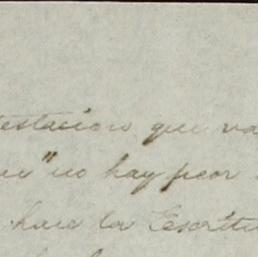 testacion que va
" no hay peor
hace la Escritu